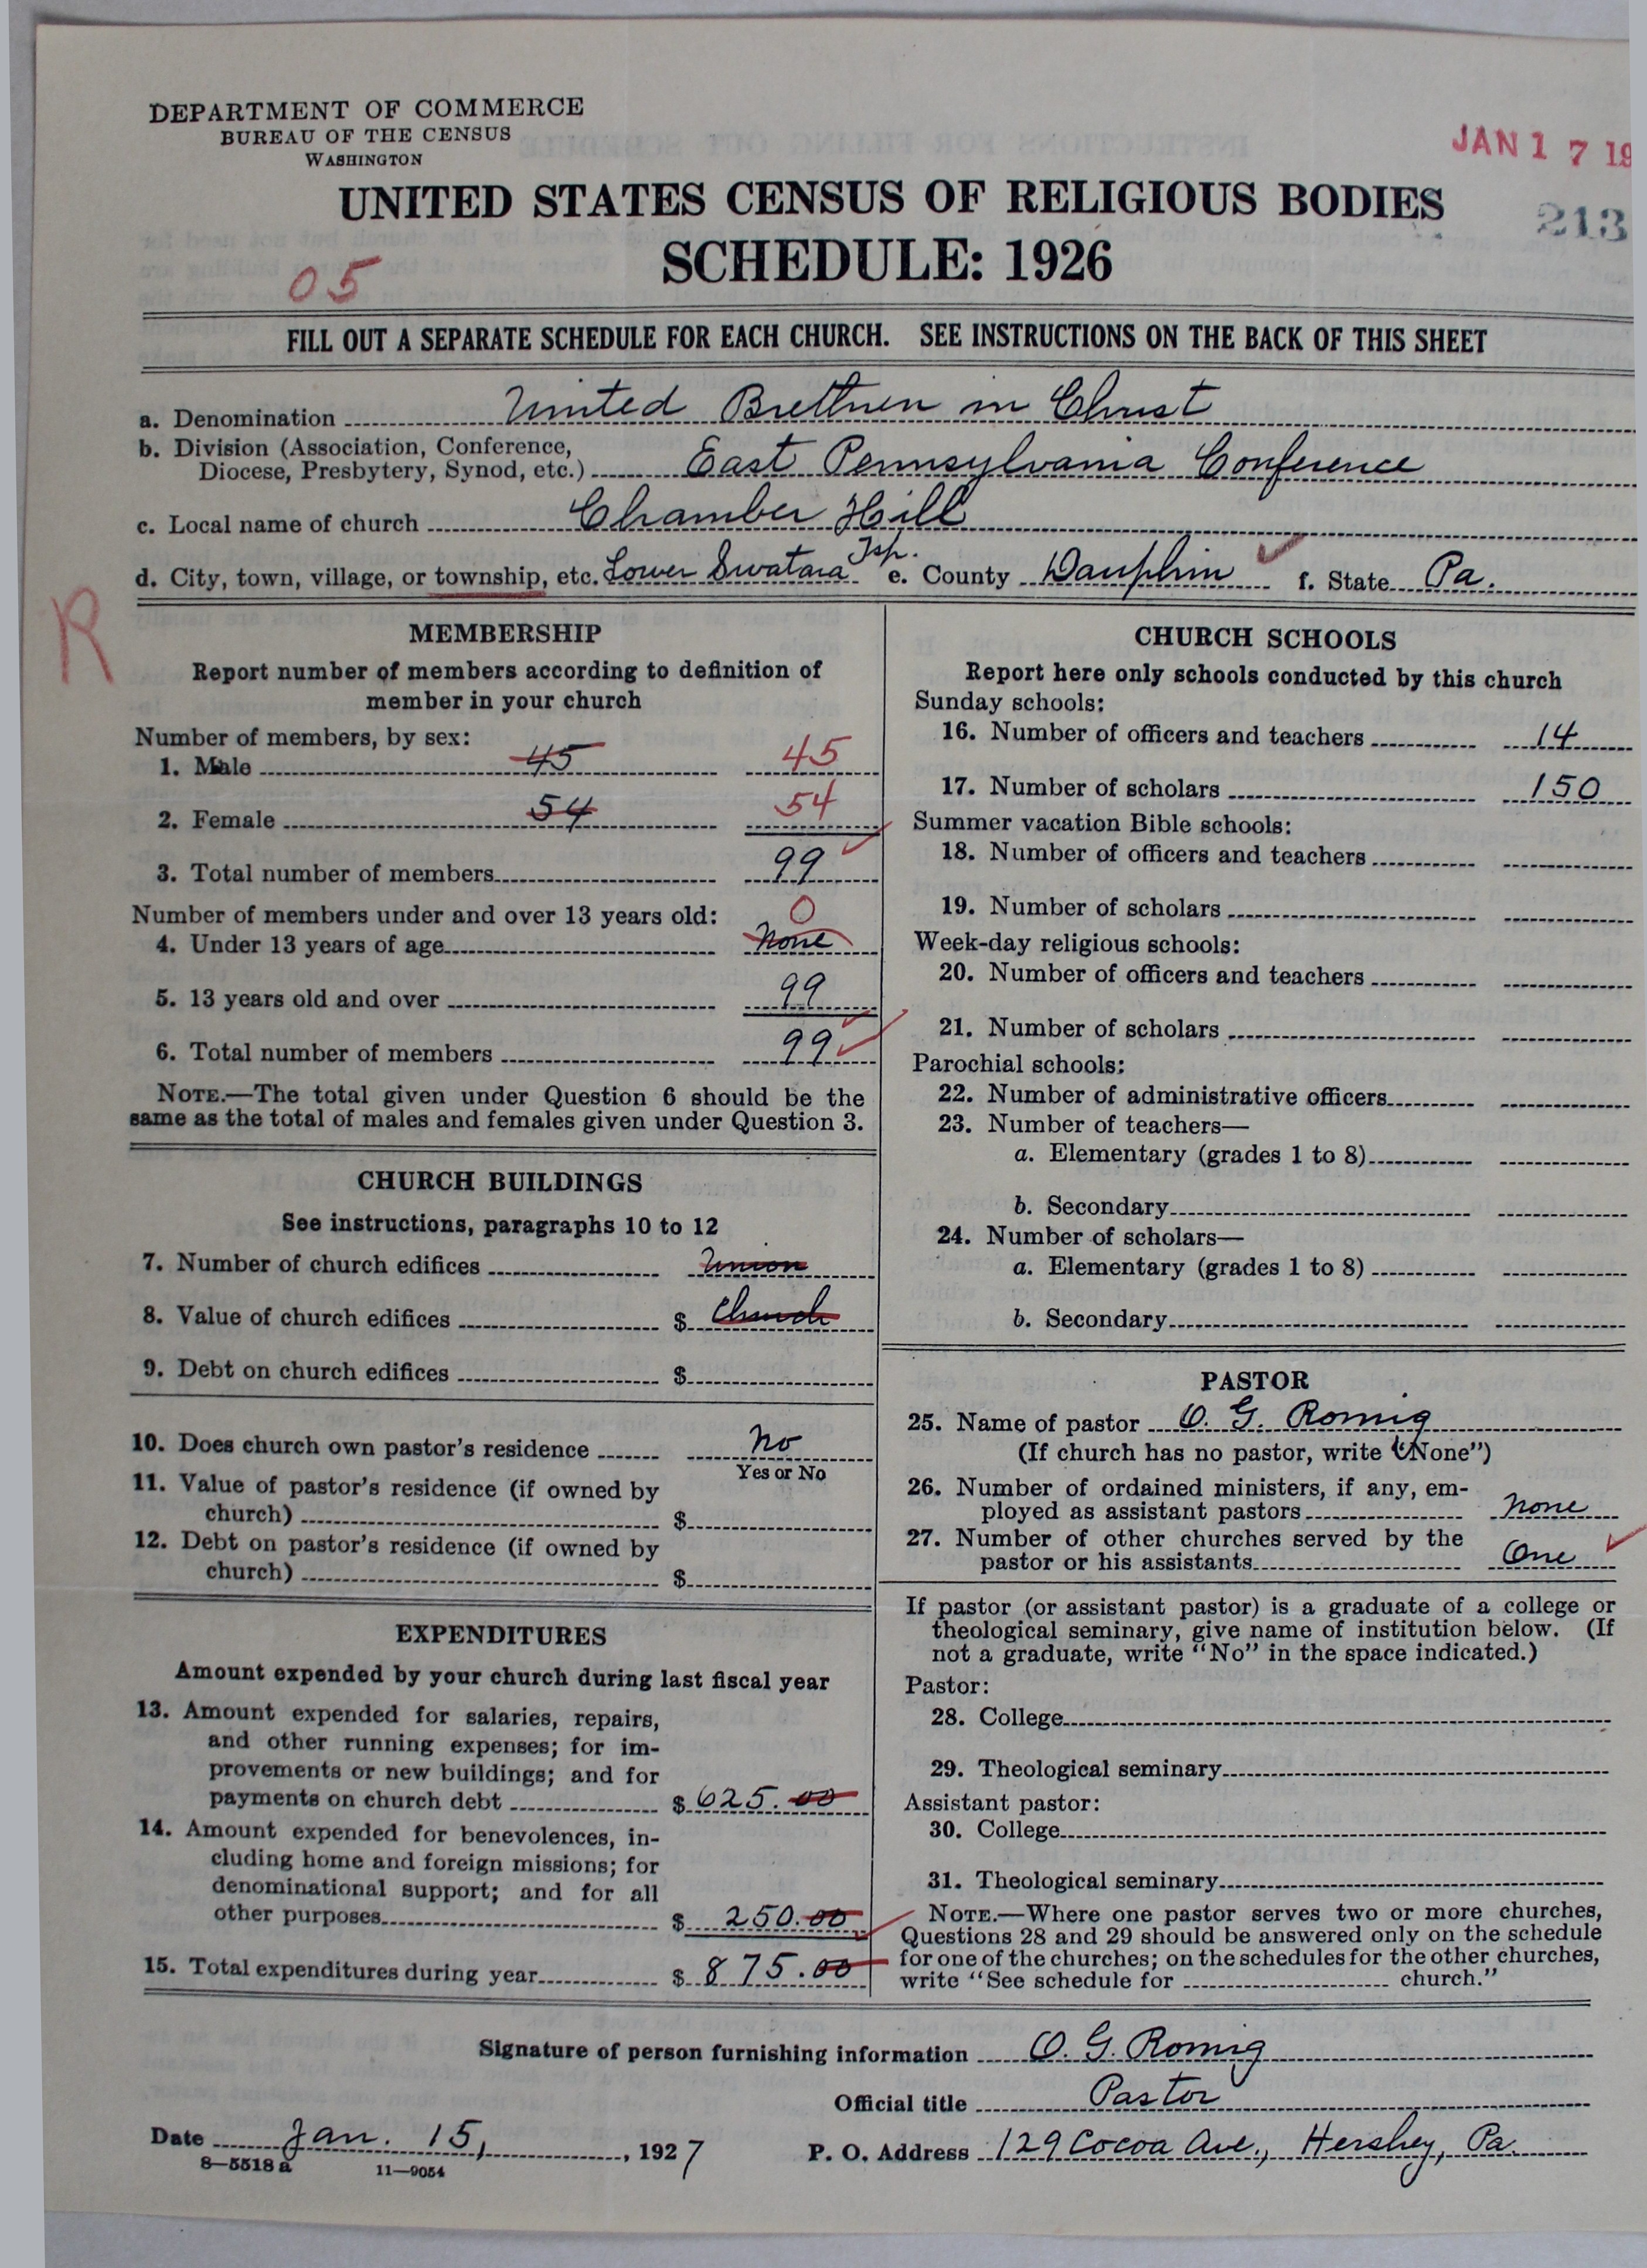 DEPARTMENT OF COMMERCE
BUREAU OF THE CENSUS
WASHINGTON
JAN 17 19
UNITED STATES CENSUS OF RELIGIOUS BODIES
213
SCHEDULE: 1926
05
FILL OUT A SEPARATE SCHEDULE FOR EACH CHURCH. SEE INSTRUCTIONS ON THE BACK OF THIS SHEET
a. Denomination United Brethren in Christ
b. Division (Association, Conference,
Diocese, Presbytery, Synod, etc.) East Pennsylvania Conference
c. Local name of church Chamber Hill
d. City, town, village, or township, etc. Lower Swatara Tsp. e. County Dauphin f. State Pa.
R
MEMBERSHIP
Report number of members according to definition of
member in your church
Number of members, by sex:
1. Male 45 45
2. Female 54 54
3. Total number of members 99
Number of members under and over 13 years old: 0
4. Under 13 years of age none
5. 13 years old and over 99
6. Total number of members 99
NOTE.—The total given under Question 6 should be the
same as the total of males and females given under Question 3.
CHURCH BUILDINGS
See instructions, paragraphs 10 to 12
7. Number of church edifices Union
8. Value of church edifices $ Church
9. Debt on church edifices $
10. Does church own pastor's residence No
Yes or No
11. Value of pastor's residence (if owned by
church) $
12. Debt on pastor's residence (if owned by
church) $
EXPENDITURES
Amount expended by your church during last fiscal year
13. Amount expended for salaries, repairs,
and other running expenses; for im-
provements or new buildings; and for
payments on church debt $ 625.00
14. Amount expended for benevolences, in-
cluding home and foreign missions; for
denominational support; and for all
other purposes $ 250.00
15. Total expenditures during year $ 875.00
CHURCH SCHOOLS
Report here only schools conducted by this church
Sunday schools:
16. Number of officers and teachers 14
17. Number of scholars 150
Summer vacation Bible schools:
18. Number of officers and teachers
19. Number of scholars
Week-day religious schools:
20. Number of officers and teachers
21. Number of scholars
Parochial schools:
22. Number of administrative officers
23. Number of teachers—
a. Elementary (grades 1 to 8)
b. Secondary
24. Number of scholars—
a. Elementary (grades 1 to 8)
b. Secondary
PASTOR
25. Name of pastor O. G. Romig
(If church has no pastor, write "None")
26. Number of ordained ministers, if any, em-
ployed as assistant pastors none
27. Number of other churches served by the
pastor or his assistants One
If pastor (or assistant pastor) is a graduate of a college or
theological seminary, give name of institution below. (If
not a graduate, write "No" in the space indicated.)
Pastor:
28. College
29. Theological seminary
Assistant pastor:
30. College
31. Theological seminary
NOTE.—Where one pastor serves two or more churches,
Questions 28 and 29 should be answered only on the schedule
for one of the churches; on the schedules for the other churches,
write "See schedule for church."
Signature of person furnishing information O. G. Romig
Official title Pastor
Date Jan. 15, , 1927 P. O. Address 129 Cocoa Ave., Hershey, Pa.
8—5518 a 11—9054